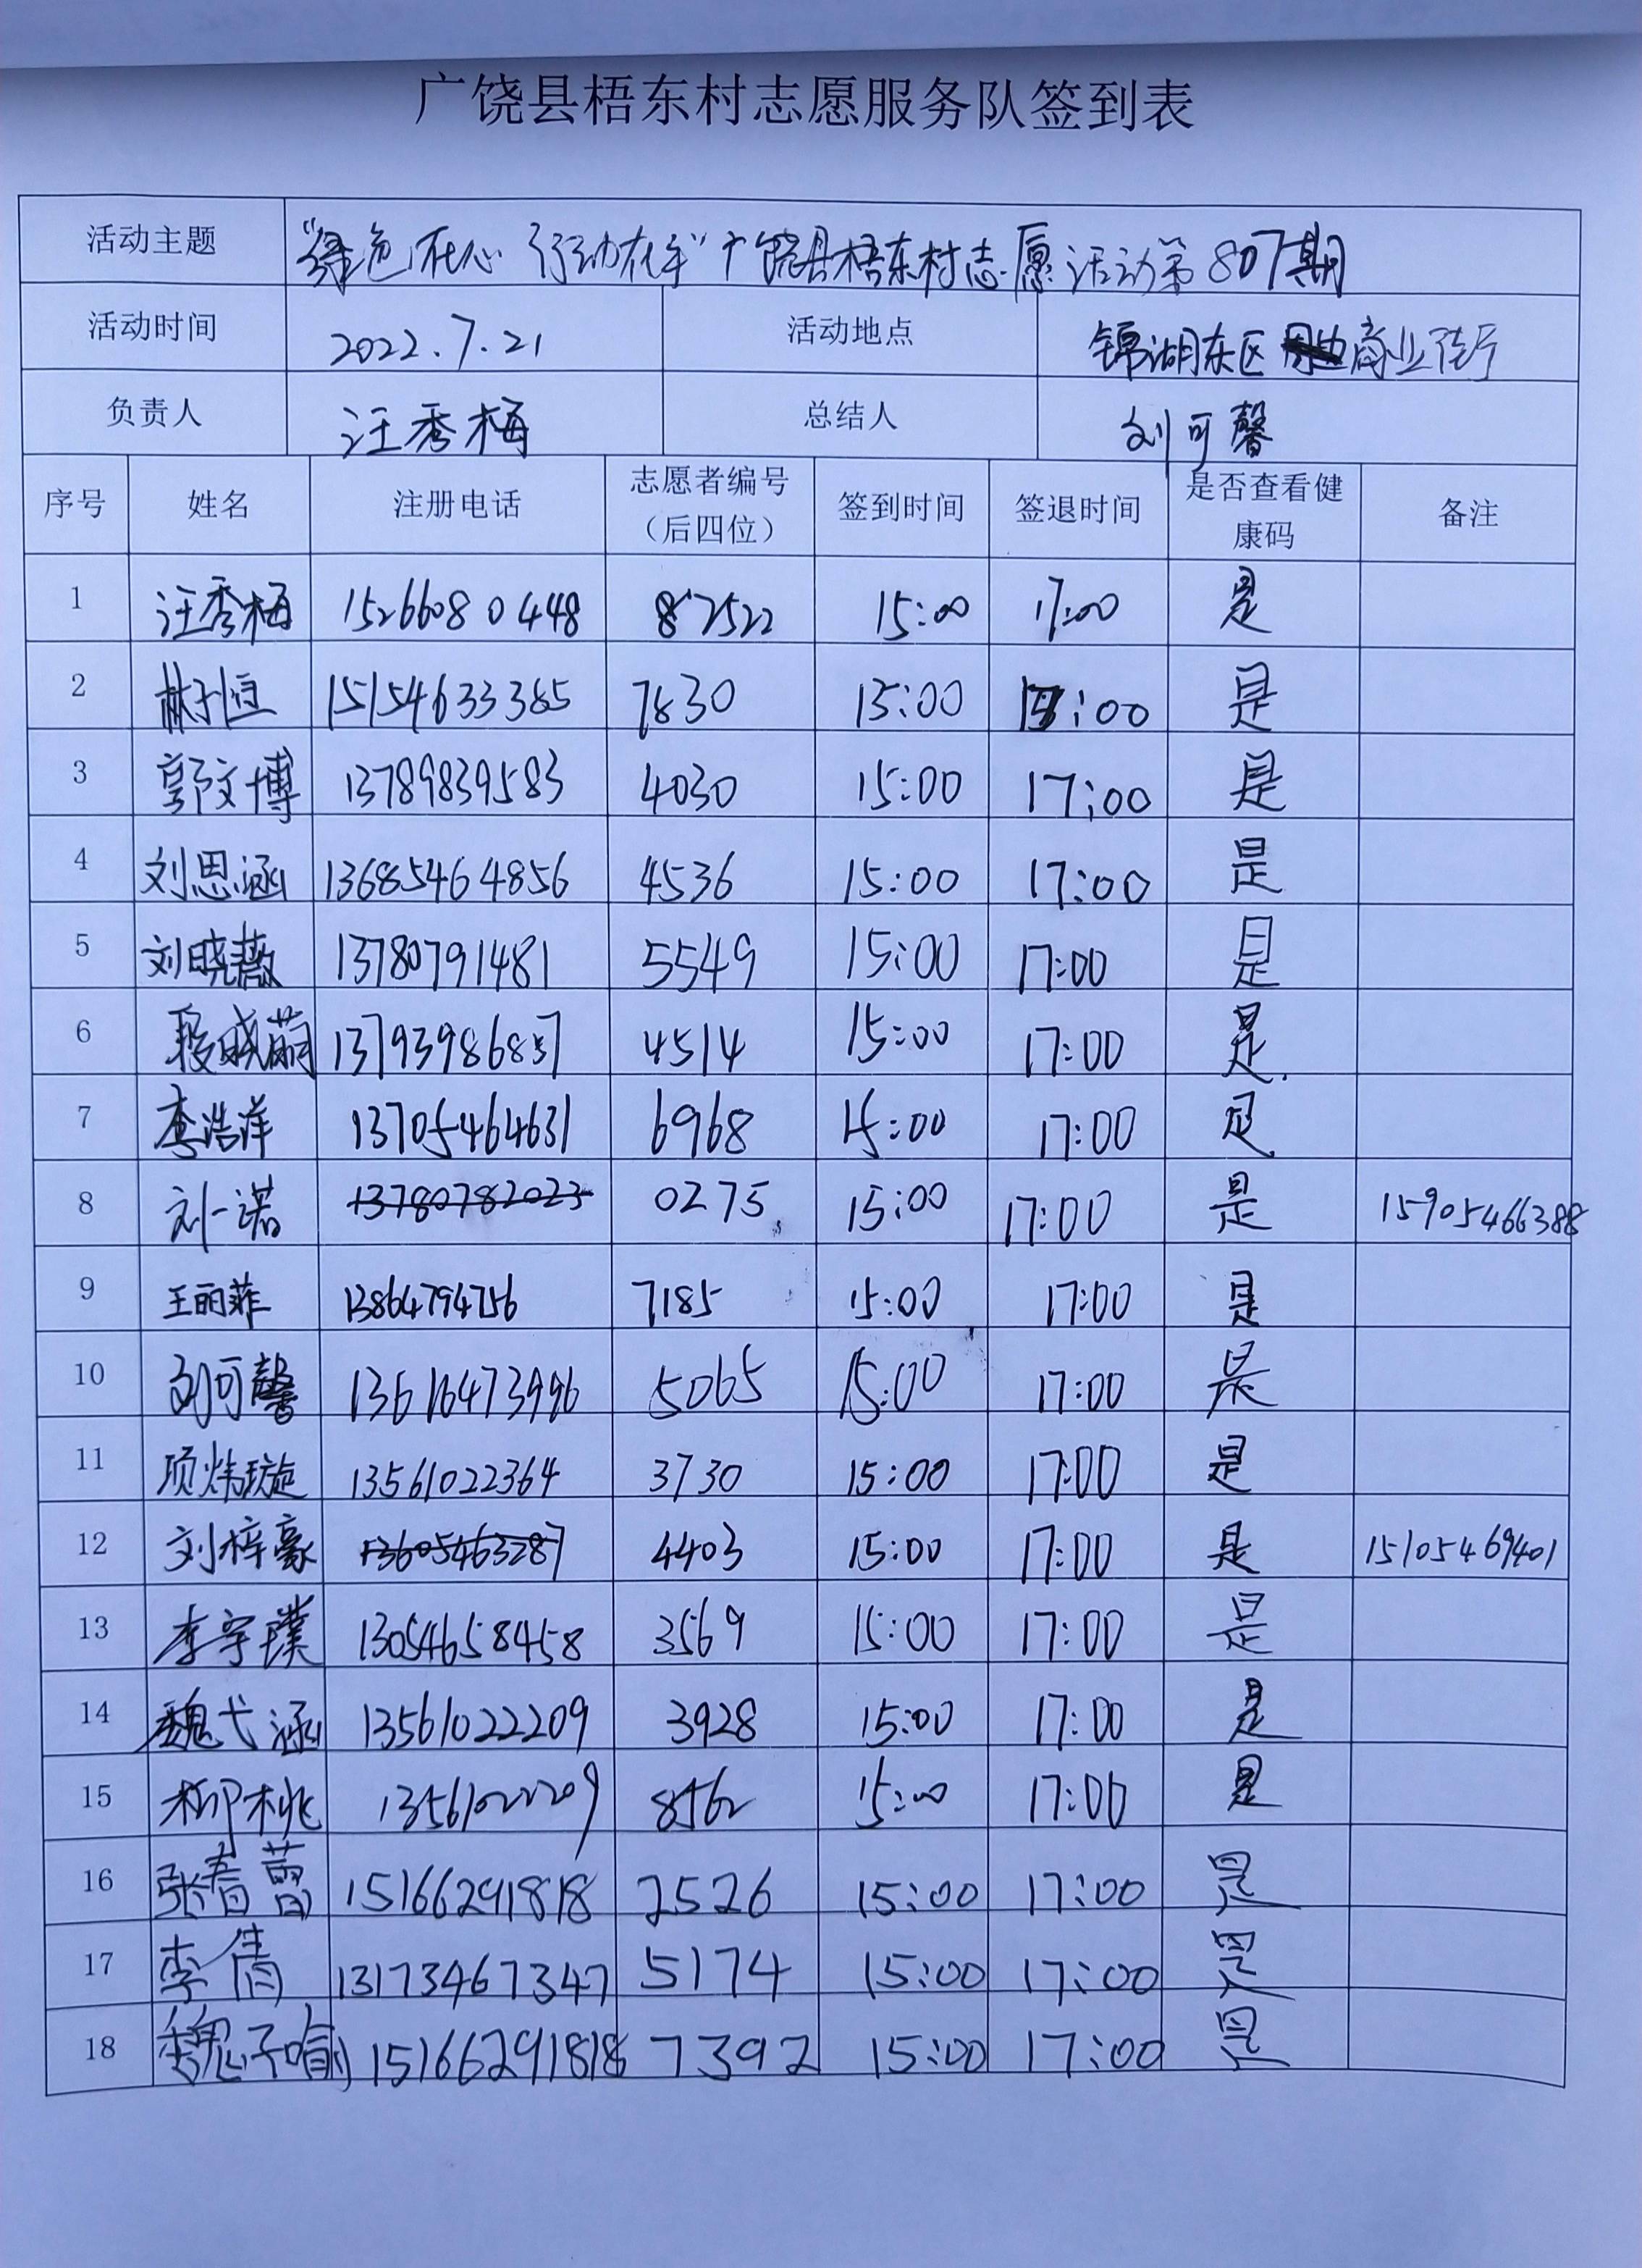 广饶县梧东村志愿服务队签到表
活动主题 “绿色在心 行动在手”广饶县梧东村志愿活动第807期
活动时间 2022.7.21 活动地点 锦湖东区商业街
负责人 汪秀梅 总结人 刘可馨
序号 姓名 注册电话 志愿者编号（后四位） 签到时间 签退时间 是否查看健康码 备注
1 汪秀梅 15266080448 2522 15:00 17:00 是
2 林子恒 15154633385 7830 15:00 17:00 是
3 郭文博 13789839583 4030 15:00 17:00 是
4 刘思涵 13685464856 4536 15:00 17:00 是
5 刘晓薇 13780791481 5549 15:00 17:00 是
6 段晓萌 13793986857 4514 15:00 17:00 是.
7 李浩洋 13705464631 6968 15:00 17:00 是
8 刘一诺 13780782023 0275 15:00 17:00 是 15905466388
9 王丽菲 13864794756 7185 15:00 17:00 是
10 刘可馨 13616473996 5065 15:00 17:00 是
11 项炜璇 13561022364 3730 15:00 17:00 是
12 刘梓豪 13605463287 4403 15:00 17:00 是 15105469401
13 李宇璞 13054658458 3569 15:00 17:00 是
14 魏弋涵 13561022209 3928 15:00 17:00 是
15 柳桃 13561022209 8562 15:00 17:00 是
16 张春蕾 15166291818 2526 15:00 17:00 是
17 李倩 13173467347 5174 15:00 17:00 是
18 魏子喻 15166291818 7392 15:00 17:00 是